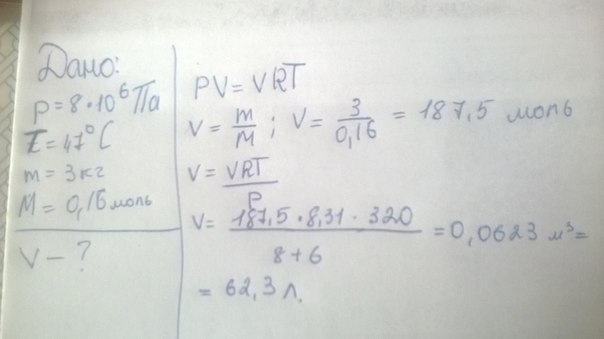 Дано:
p = 8 · 10⁶ Па
t = 47° C
m = 3 кг
M = 0,16 моль
V - ?
PV = VRT
V = m/M ; V = 3/0,16 = 187,5 моль
V = VRT/P
V = 187,5 · 8,31 · 320 / 8 + 6 = 0,0623 м³ =
= 62,3 л.